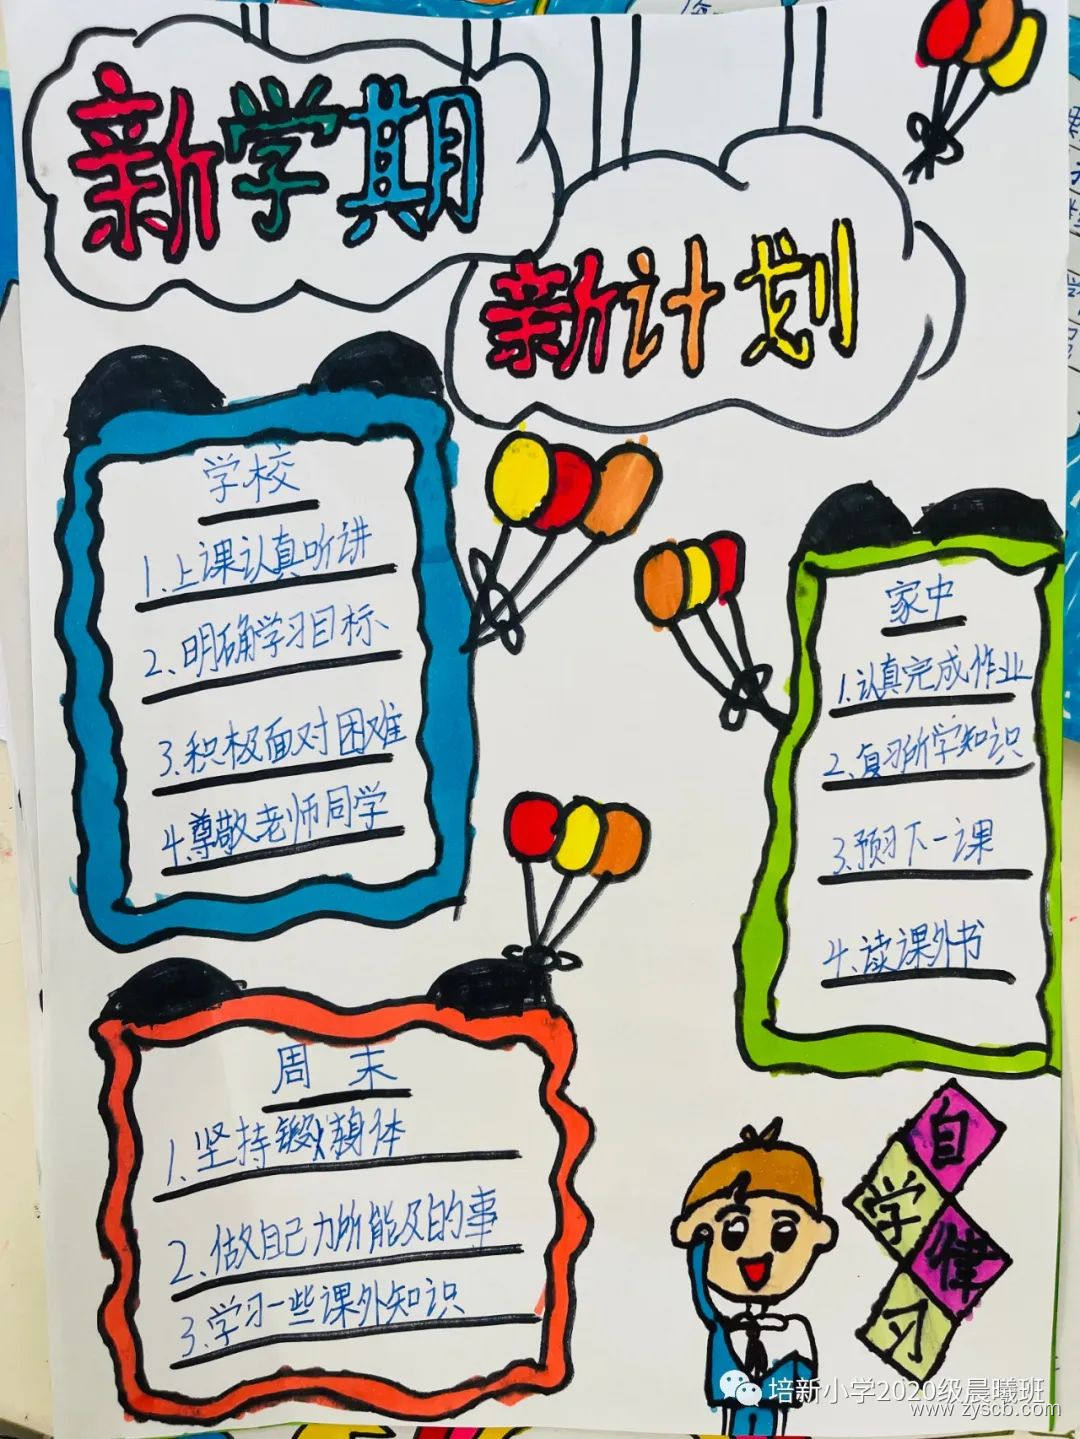 新学期
新计划
学校
1.上课认真听讲
2、明确学习目标
3.积极面对困难
4.尊敬老师同学
家中
1.认真完成作业
2、复习所学知识
3.预习下一课
4、读课外书
周末
1、坚持锻炼身体
2、做自己力所能及的事
3.学习一些课外知识
自
学
懂
习
培新小学2020级晨曦班
www.zyscb.com